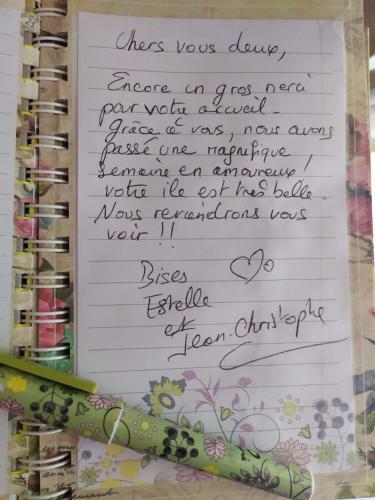 Chers vous deux,
Encore un gros merci
pour votre accueil.
Grâce à vous, nous avons
passé une magnifique
semaine en amoureux !
votre ile est très belle.
Nous reviendrons vous
voir !!
Bises
Estelle
et
Jean-Christophe